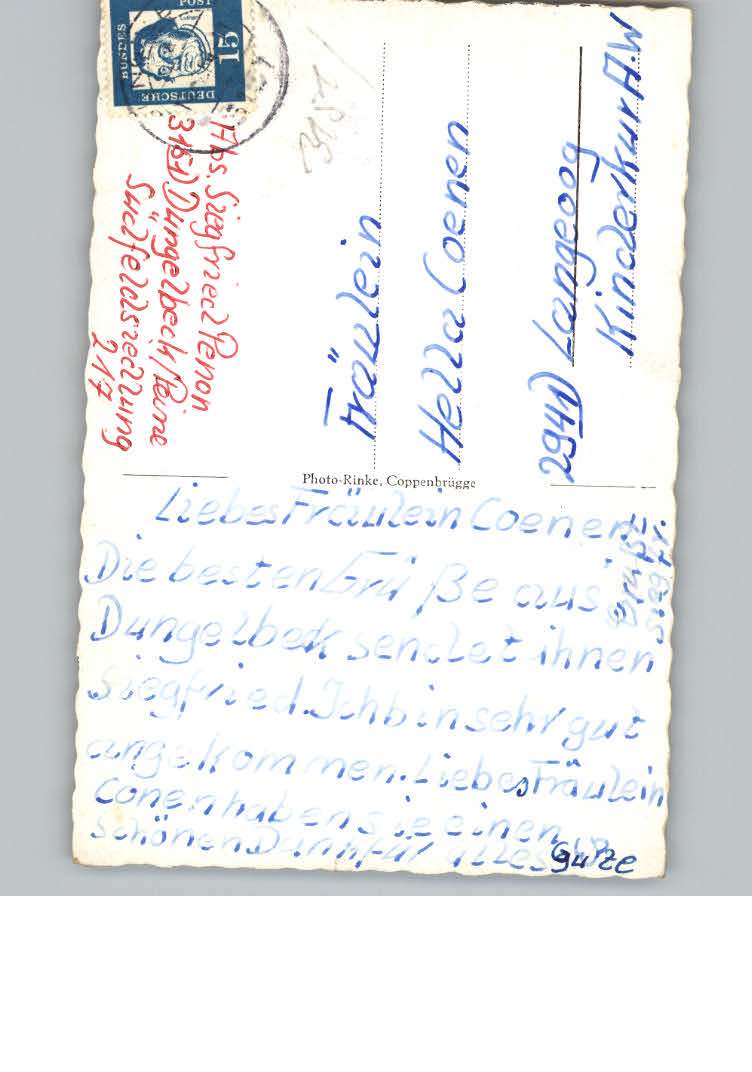 DEUTSCHE
BUNDES
POST
15
3151
Abs. Siegfried Penon
3151 Dungelbeck/Peine
Südfeldsiedlung
217
Fräulein
Hella Coenen
2941 Langeoog
Kinderkur A.W
Photo-Rinke, Coppenbrügge
Liebes Fräulein Coenen
Die besten Grü ße aus
Dungelbek sendet ihnen
Siegfried. Ich bin sehr gut
angekommen. Liebes Fräulein
Conen haben sie einen
schönen Dank für alles
gute